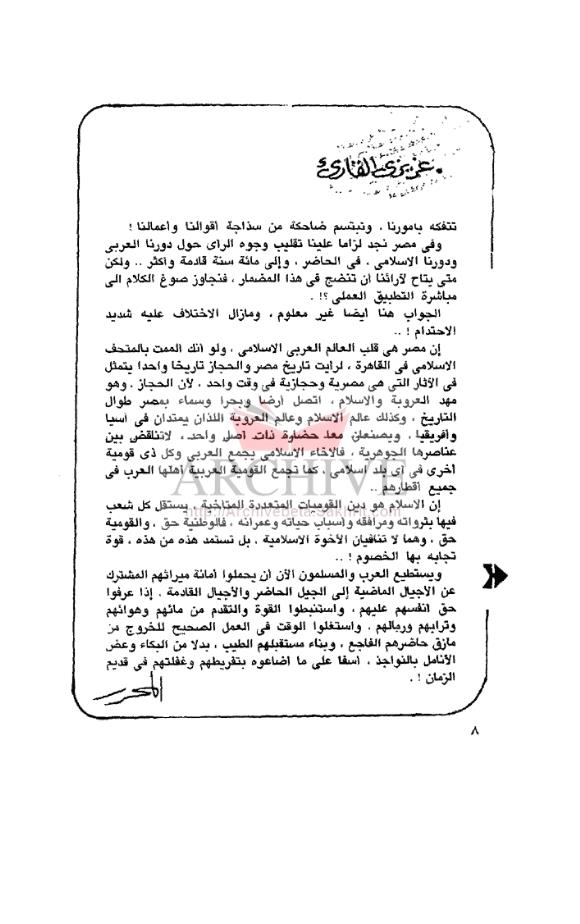 عزيزي القارئ
تتفكه بأمورنا ، وتبتسم ضاحكة من سذاجة أقوالنا وأعمالنا !
وفى مصر نجد لزاما علينا تقليب وجوه الرأى حول دورنا العربى
ودورنا الاسلامى ، فى الحاضر ، وإلى مائة سنة قادمة وأكثر .. ولكن
متى يتاح لآرائنا أن تنضج فى هذا المضمار ، فنجاوز صوغ الكلام الى
مباشرة التطبيق العملى ؟! .
الجواب هنا أيضا غير معلوم ، ومازال الاختلاف عليه شديد
الاحتدام ! ..
إن مصر هى قلب العالم العربى الاسلامى ، ولو أنك ألممت بالمتحف
الاسلامى فى القاهرة ، لرأيت تاريخ مصر والحجاز تاريخا واحدا يتمثل
فى الآثار التى هى مصرية وحجازية فى وقت واحد ، لأن الحجاز . وهو
مهد العروبة والاسلام ، اتصل أرضا وبحرا وسماء بمصر طوال
التاريخ ، وكذلك عالم الاسلام وعالم العروبة اللذان يمتدان فى آسيا
وأفريقيا ، ويصنعان معا حضارة ذات أصل واحد ، لاتناقض بين
عناصرها الجوهرية ، فالاخاء الاسلامى يجمع العربى وكل ذى قومية
أخرى فى أى بلد اسلامى ، كما تجمع القومية العربية أهلها العرب فى
جميع أقطارهم ..
إن الاسلام هو دين القوميات المتعددة المتآخية ، يستقل كل شعب
فيها بثرواته ومرافقه وأسباب حياته وعمرانه ، فالوطنية حق ، والقومية
حق ، وهما لا تنافيان الأخوة الاسلامية ، بل تستمد هذه من هذه ، قوة
تجابه بها الخصوم ! ..
ويستطيع العرب والمسلمون الآن أن يحملوا أمانة ميراثهم المشترك
عن الأجيال الماضية إلى الجيل الحاضر والأجيال القادمة . إذا عرفوا
حق أنفسهم عليهم ، واستنبطوا القوة والتقدم من مائهم وهوائهم
وترابهم ورمالهم ، واستغلوا الوقت فى العمل الصحيح للخروج من
مازق حاضرهم الفاجع ، وبناء مستقبلهم الطيب ، بدلا من البكاء وعض
الأنامل بالنواجذ ، أسفا على ما أضاعوه بتفريطهم وغفلتهم فى قديم
الزمان ! .
المحرر
٨
ARCHIVE
http://Archivebeta.Sakhrit.com